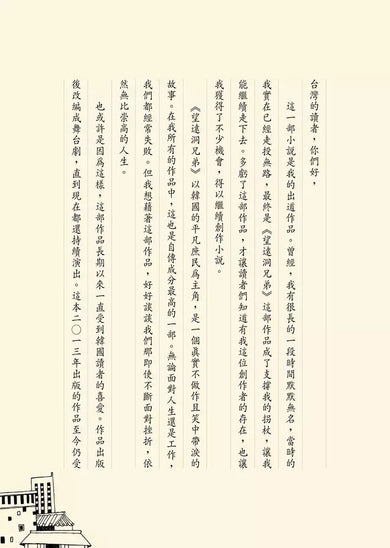 台灣的讀者，你們好，
這一部小說是我的出道作品。曾經，我有很長的一段時間默默無名，當時的
我實在已經走投無路，最終是《望遠洞兄弟》這部作品成了支撐我的拐杖，讓我
能繼續走下去。多虧了這部作品，才讓讀者們知道有我這位創作者的存在，也讓
我獲得了不少機會，得以繼續創作小說。
《望遠洞兄弟》以韓國的平凡庶民為主角，是一個真實不做作且笑中帶淚的
故事。在我所有的作品中，這也是自傳成分最高的一部。無論面對人生還是工作，
我們都經常失敗。但我想藉著這部作品，好好談談我們那即使不斷面對挫折，依
然無比崇高的人生。
也或許是因為這樣，這部作品長期以來一直受到韓國讀者的喜愛。作品出版
後改編成舞台劇，直到現在都還持續演出。這本二〇一三年出版的作品至今仍受